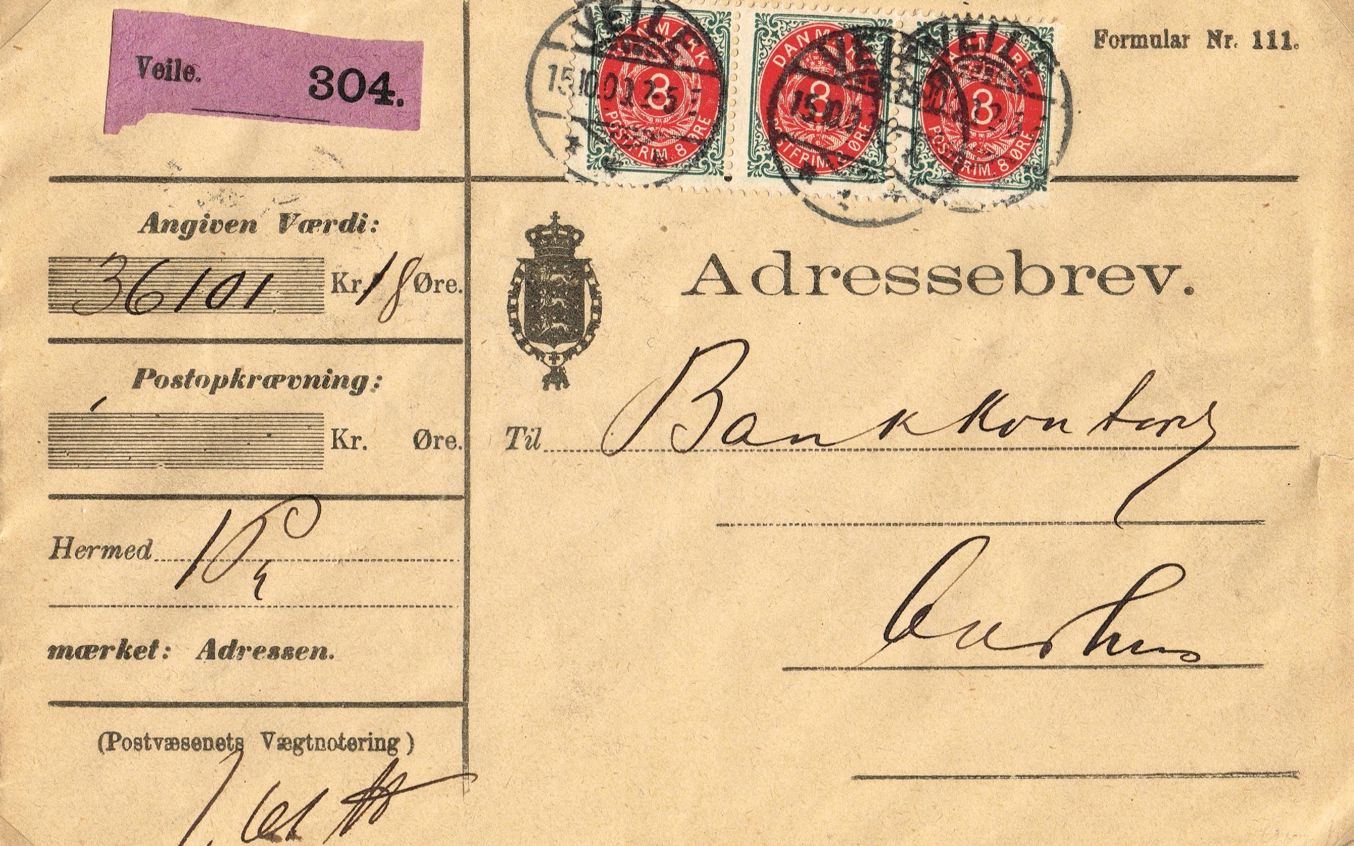 Veile.
304.
VEILE
15.10.00.2-5
DANMARK
8
POSTFRIM. 8 ØRE
VEILE
15.10.0
DANMARK
8
POSTFRIM. 8 ØRE
VEILE
DANMARK
8
POSTFRIM. 8 ØRE
Formular Nr. 111.
Angiven Værdi:
36101 Kr. 18 Øre.
Postopkrævning:
Kr. Øre.
Hermed
mærket: Adressen.
(Postvæsenets Vægtnotering)
Adressebrev.
Til Bankkontoret
Aarhus